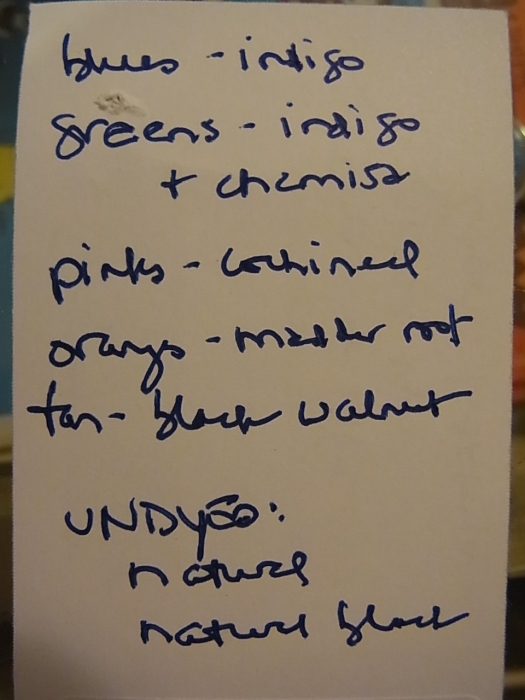 blues - indigo
greens - indigo
+ chamisa
pinks - cochineal
orange - madder root
tan - black walnut
UNDYED:
natural
natural black